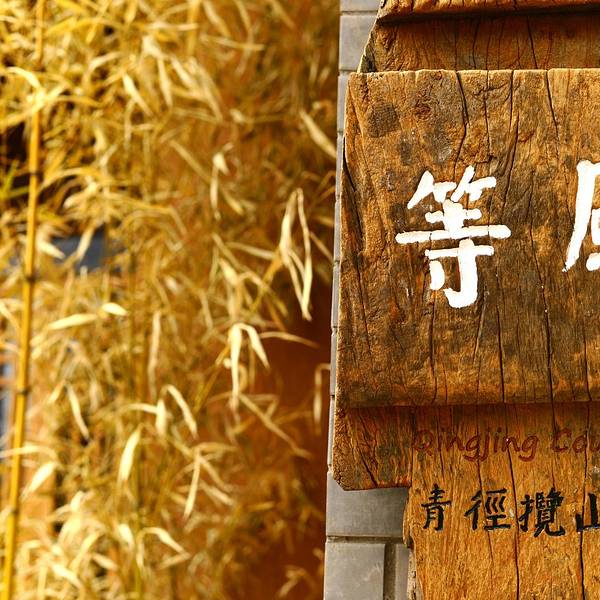 等
Qingjing
青徑攬山